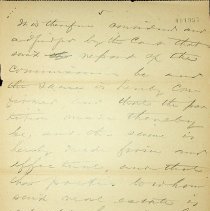 5
It is therefore considered and
adjudged by the Court that
said report of the
Commissioners be and
the same is hereby Con
firmed and that the par
tition made thereby
be and the same is
hereby made firm and
effectual, and that
the parties to whom
said real estate is